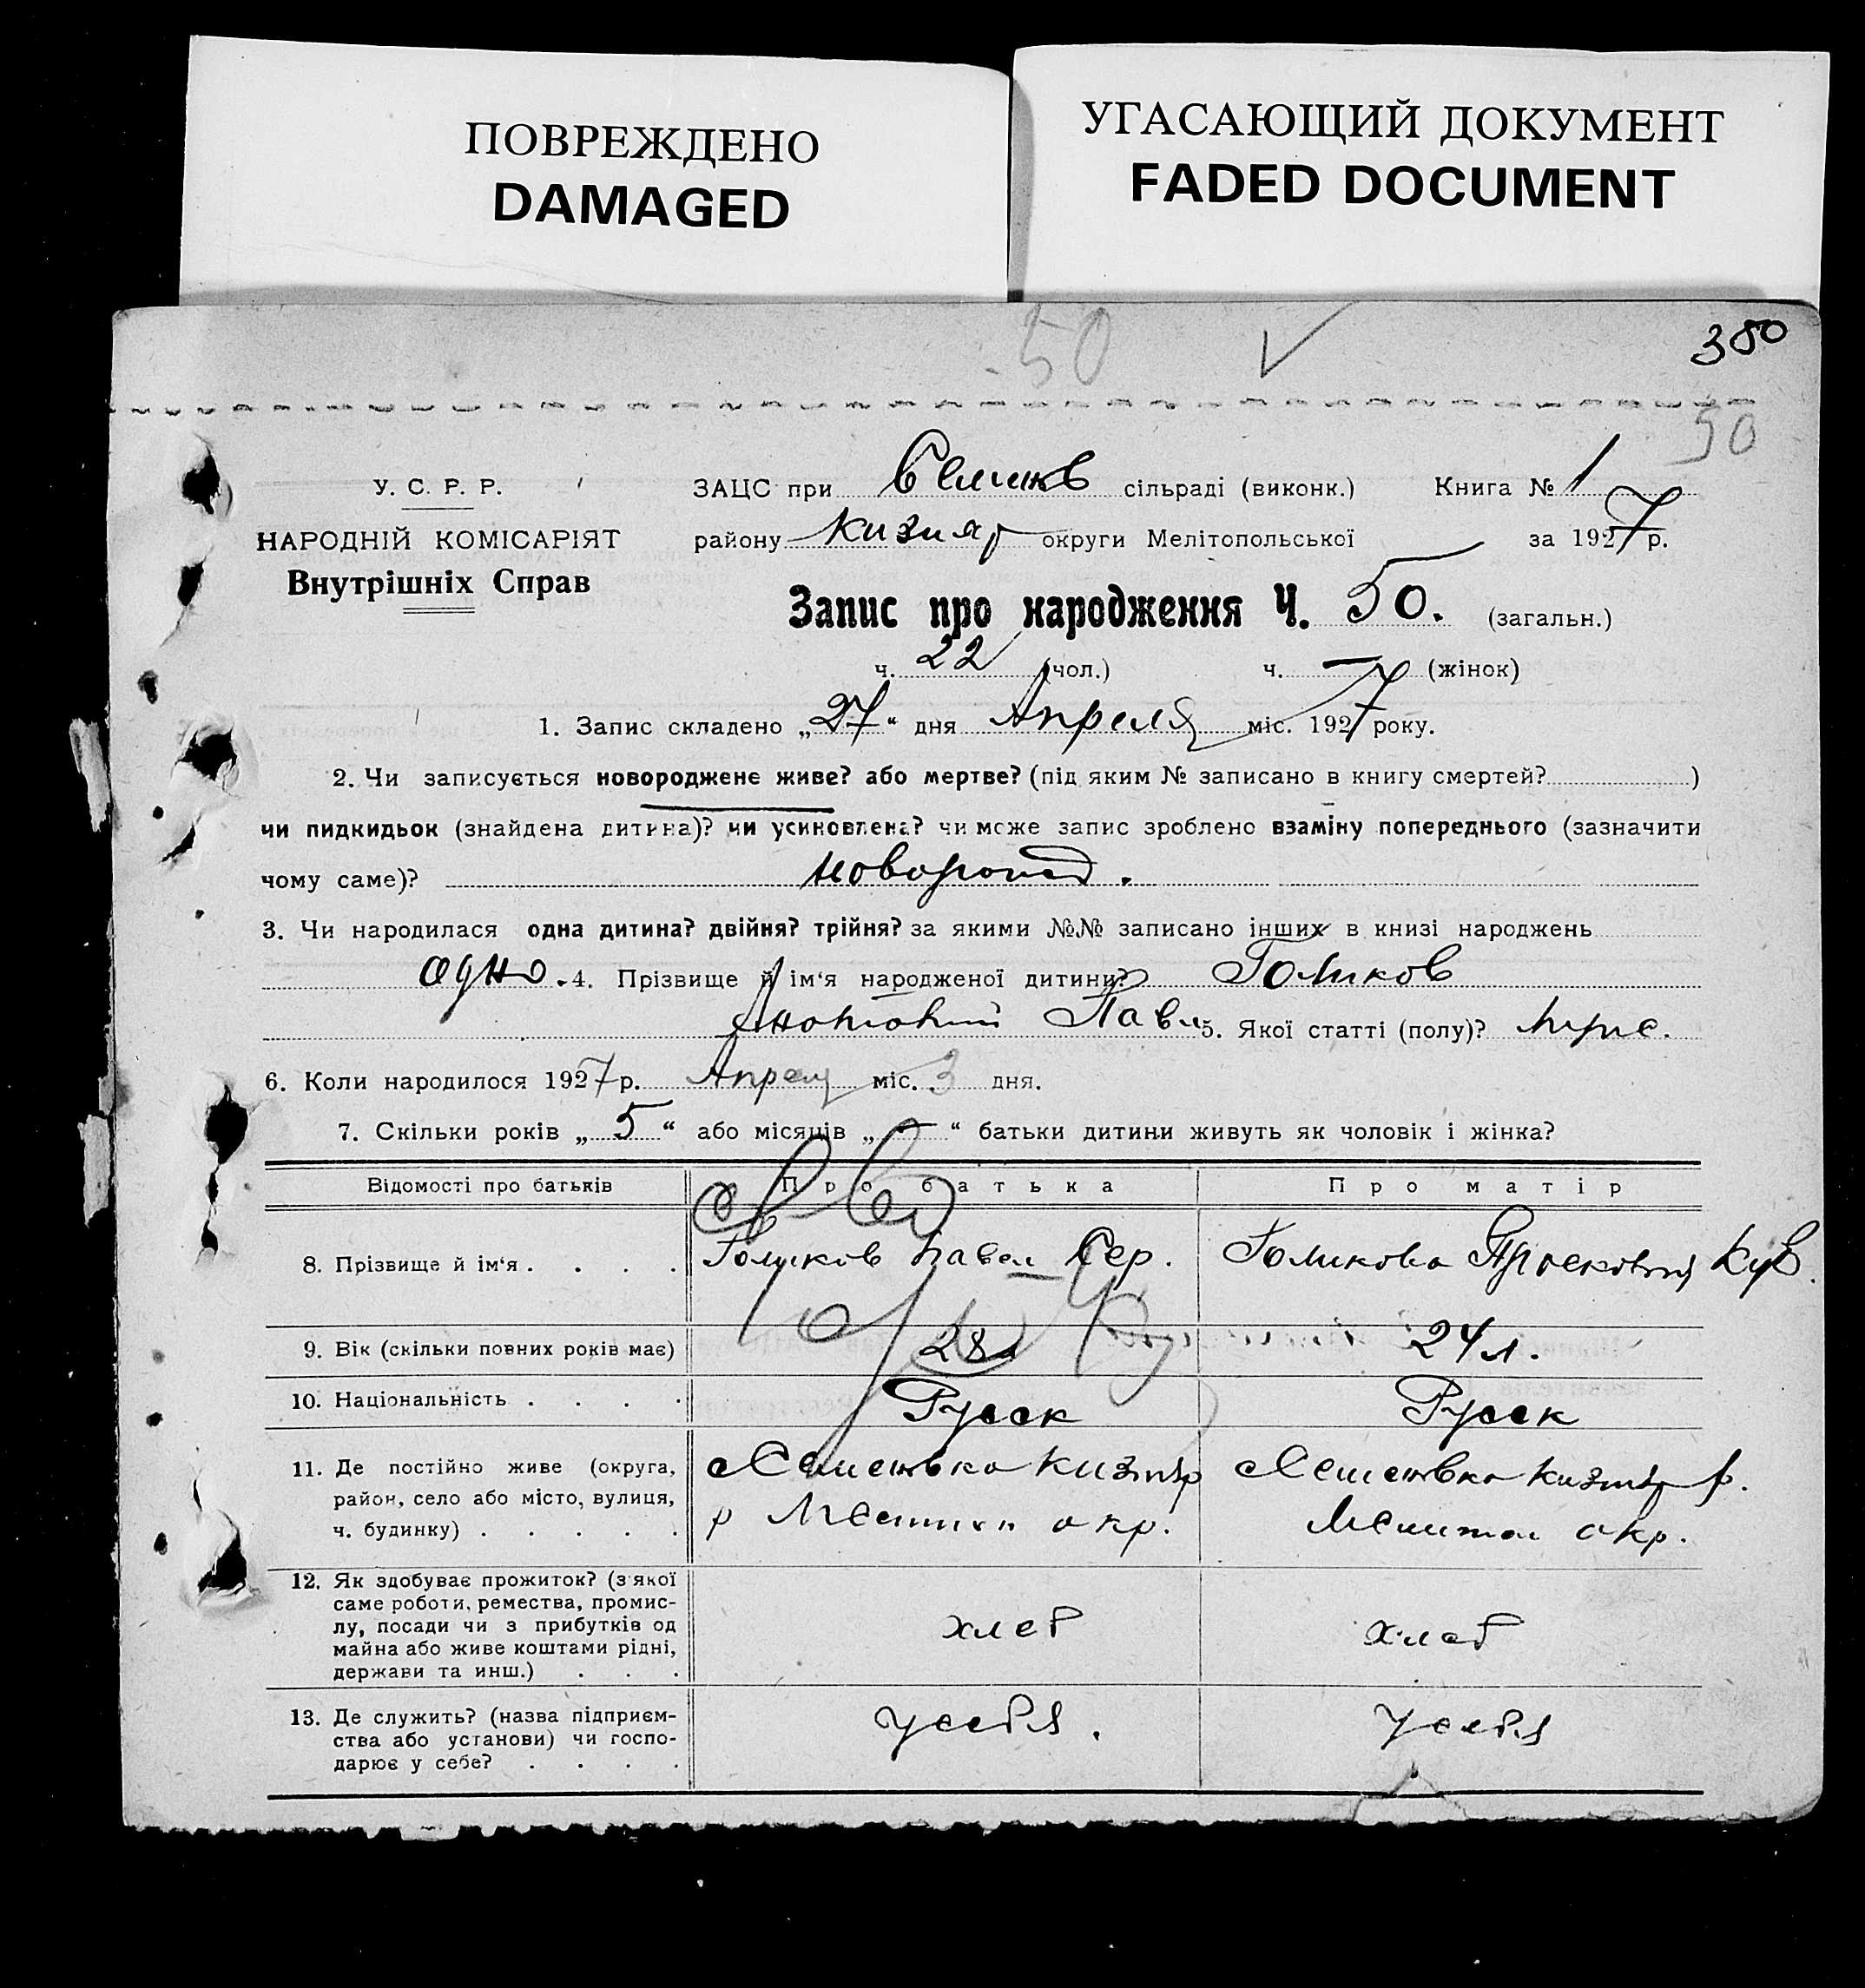 ПОВРЕЖДЕНО
DAMAGED
УГАСАЮЩИЙ ДОКУМЕНТ
FADED DOCUMENT
50
380
50
У. С. Р. Р.
НАРОДНІЙ КОМІСАРІЯТ
Внутрішніх Справ
ЗАЦС при сільраді (виконк.) Книга № 1
району Кизияр округи Мелітопольської за 1927 р.
Запис про народження Ч. 50. (загальн.)
ч. 22 (чол.) ч. — (жінок)
1. Запис складено „27“ дня Апреля міс. 1927 року.
2. Чи записується новороджене живе? або мертве? (під яким № записано в книгу смертей? )
чи пидкидьок (знайдена дитина)? чи усиновлена? чи може запис зроблено взаміну попереднього (зазначити
чому саме)? новорожд.
3. Чи народилася одна дитина? двійня? трійня? за якими №№ записано інших в книзі народжень
одно. 4. Прізвище й ім‘я народженої дитини? Голиков
Павл 5. Якої статті (полу)? муже.
6. Коли народилося 1927 р. Апреля міс. 3 дня.
7. Скільки років „5“ або місяців „—“ батьки дитини живуть як чоловік і жінка?
Відомості про батьків Про батька Про матір
8. Прізвище й ім‘я . . . . Голиков Павел Сер. Голикова
9. Вік (скільки повних років має) 28л 24л.
10. Національність . . . . Русск Русск
11. Де постійно живе (округа,
район, село або місто, вулиця,
ч. будинку) . . . . .
с Семеновка Кизияр
р Мелитоп окр.
с Семеновка Кизияр р.
Мелитоп окр.
12. Як здобуває прожиток? (з якої
саме роботи, ремества, промис-
лу, посади чи з прибутків од
майна або живе коштами рідні,
держави та инш.) . . .
хлеб
хлеб
13. Де служить? (назва підприєм-
ства або установи) чи госпо-
дарює у себе? . . . .
у себя.
у себя